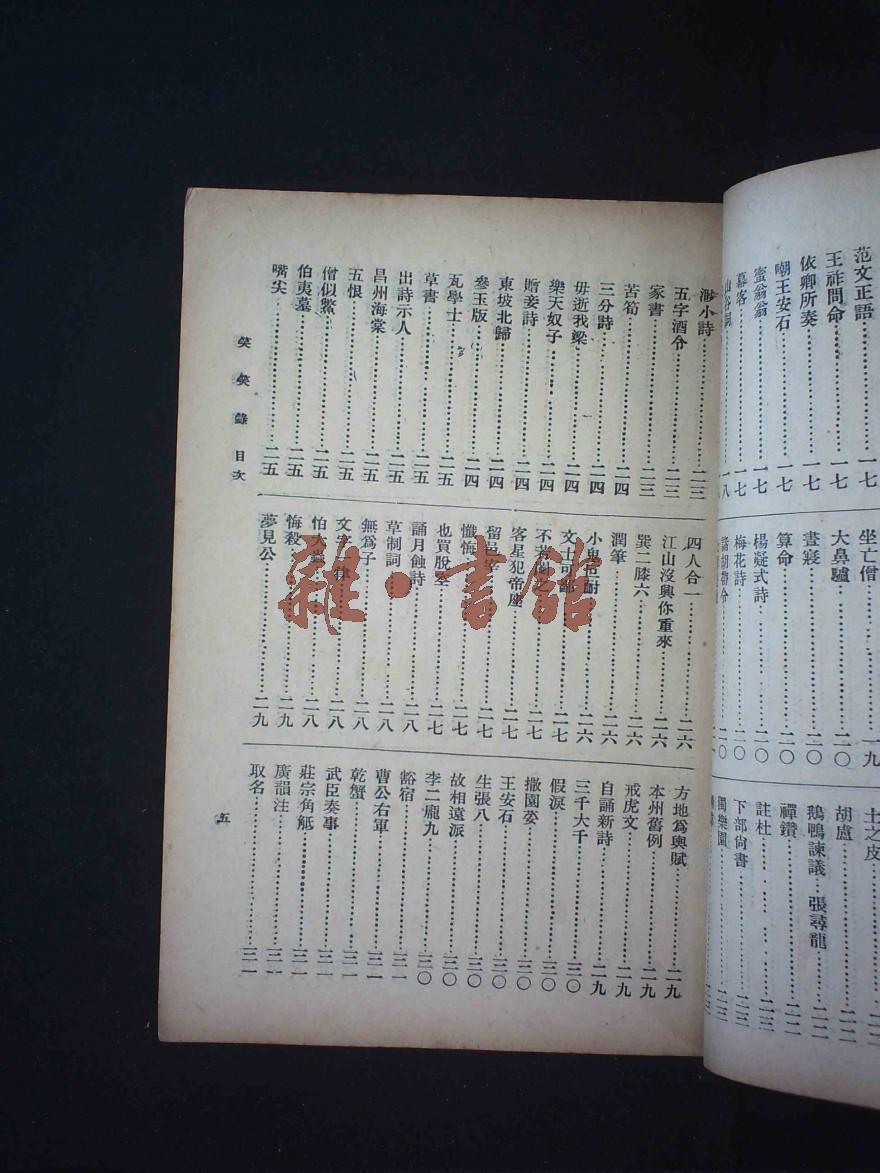 范文正語………一七
王祚問命………一七
依卿所奏………一七
嘲王安石………一七
蜜翁翁………一七
慕客………一七
坐亡僧………一九
大鼻驢………二〇
晝寢………二〇
算命………二〇
楊凝式詩………二〇
梅花詩………二〇
士之皮
胡盧………二二
鵝鴨諫議 張尋龍………二二
禪鑽………二二
註杜………二三
下部尙書………二三
獨樂園………二三
渺小詩………二三
五字酒令………二三
家書………二三
苦筍………二四
三分詩………二四
毋逝我梁………二四
樂天奴子………二四
贈妾詩………二四
東坡北歸………二四
參玉版………二四
瓦學士………二五
草書………二五
出詩示人………二五
昌州海棠………二五
五恨………二五
僧似鱉………二五
伯夷墓………二五
嘴尖………二五
四人合一………二六
江山沒興你重來………二六
巽二膝六………二六
潤筆………二六
小鬼叵耐………二六
文士可鄙………二七
不若閣之………二七
客星犯帝座………二七
留邑宰………二七
懺悔………二七
也買脫空………二七
誦月蝕詩………二八
草制詞………二八
無爲子………二八
文字一律………二八
怕大蟲………二八
悔殺………二九
夢見公………二九
方地爲輿賦………二九
本州舊例………二九
戒虎文………二九
自誦新詩………二九
三千大千………三〇
假淚………三〇
撒園荽………三〇
王安石………三〇
生張八………三〇
故相遠派………三〇
李二龐九………三〇
豁宿………三一
曹公右軍………三一
乾蟹………三一
武臣奏事………三一
莊宗角觝………三一
廣韻注………三一
取名………三一
笑笑錄 目次
五
雜·書館